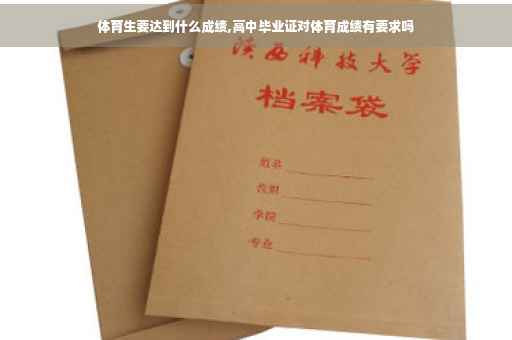 体育生要达到什么成绩,高中毕业证对体育成绩有要求吗
陕西科技大学
档案袋
姓名
学院
专业